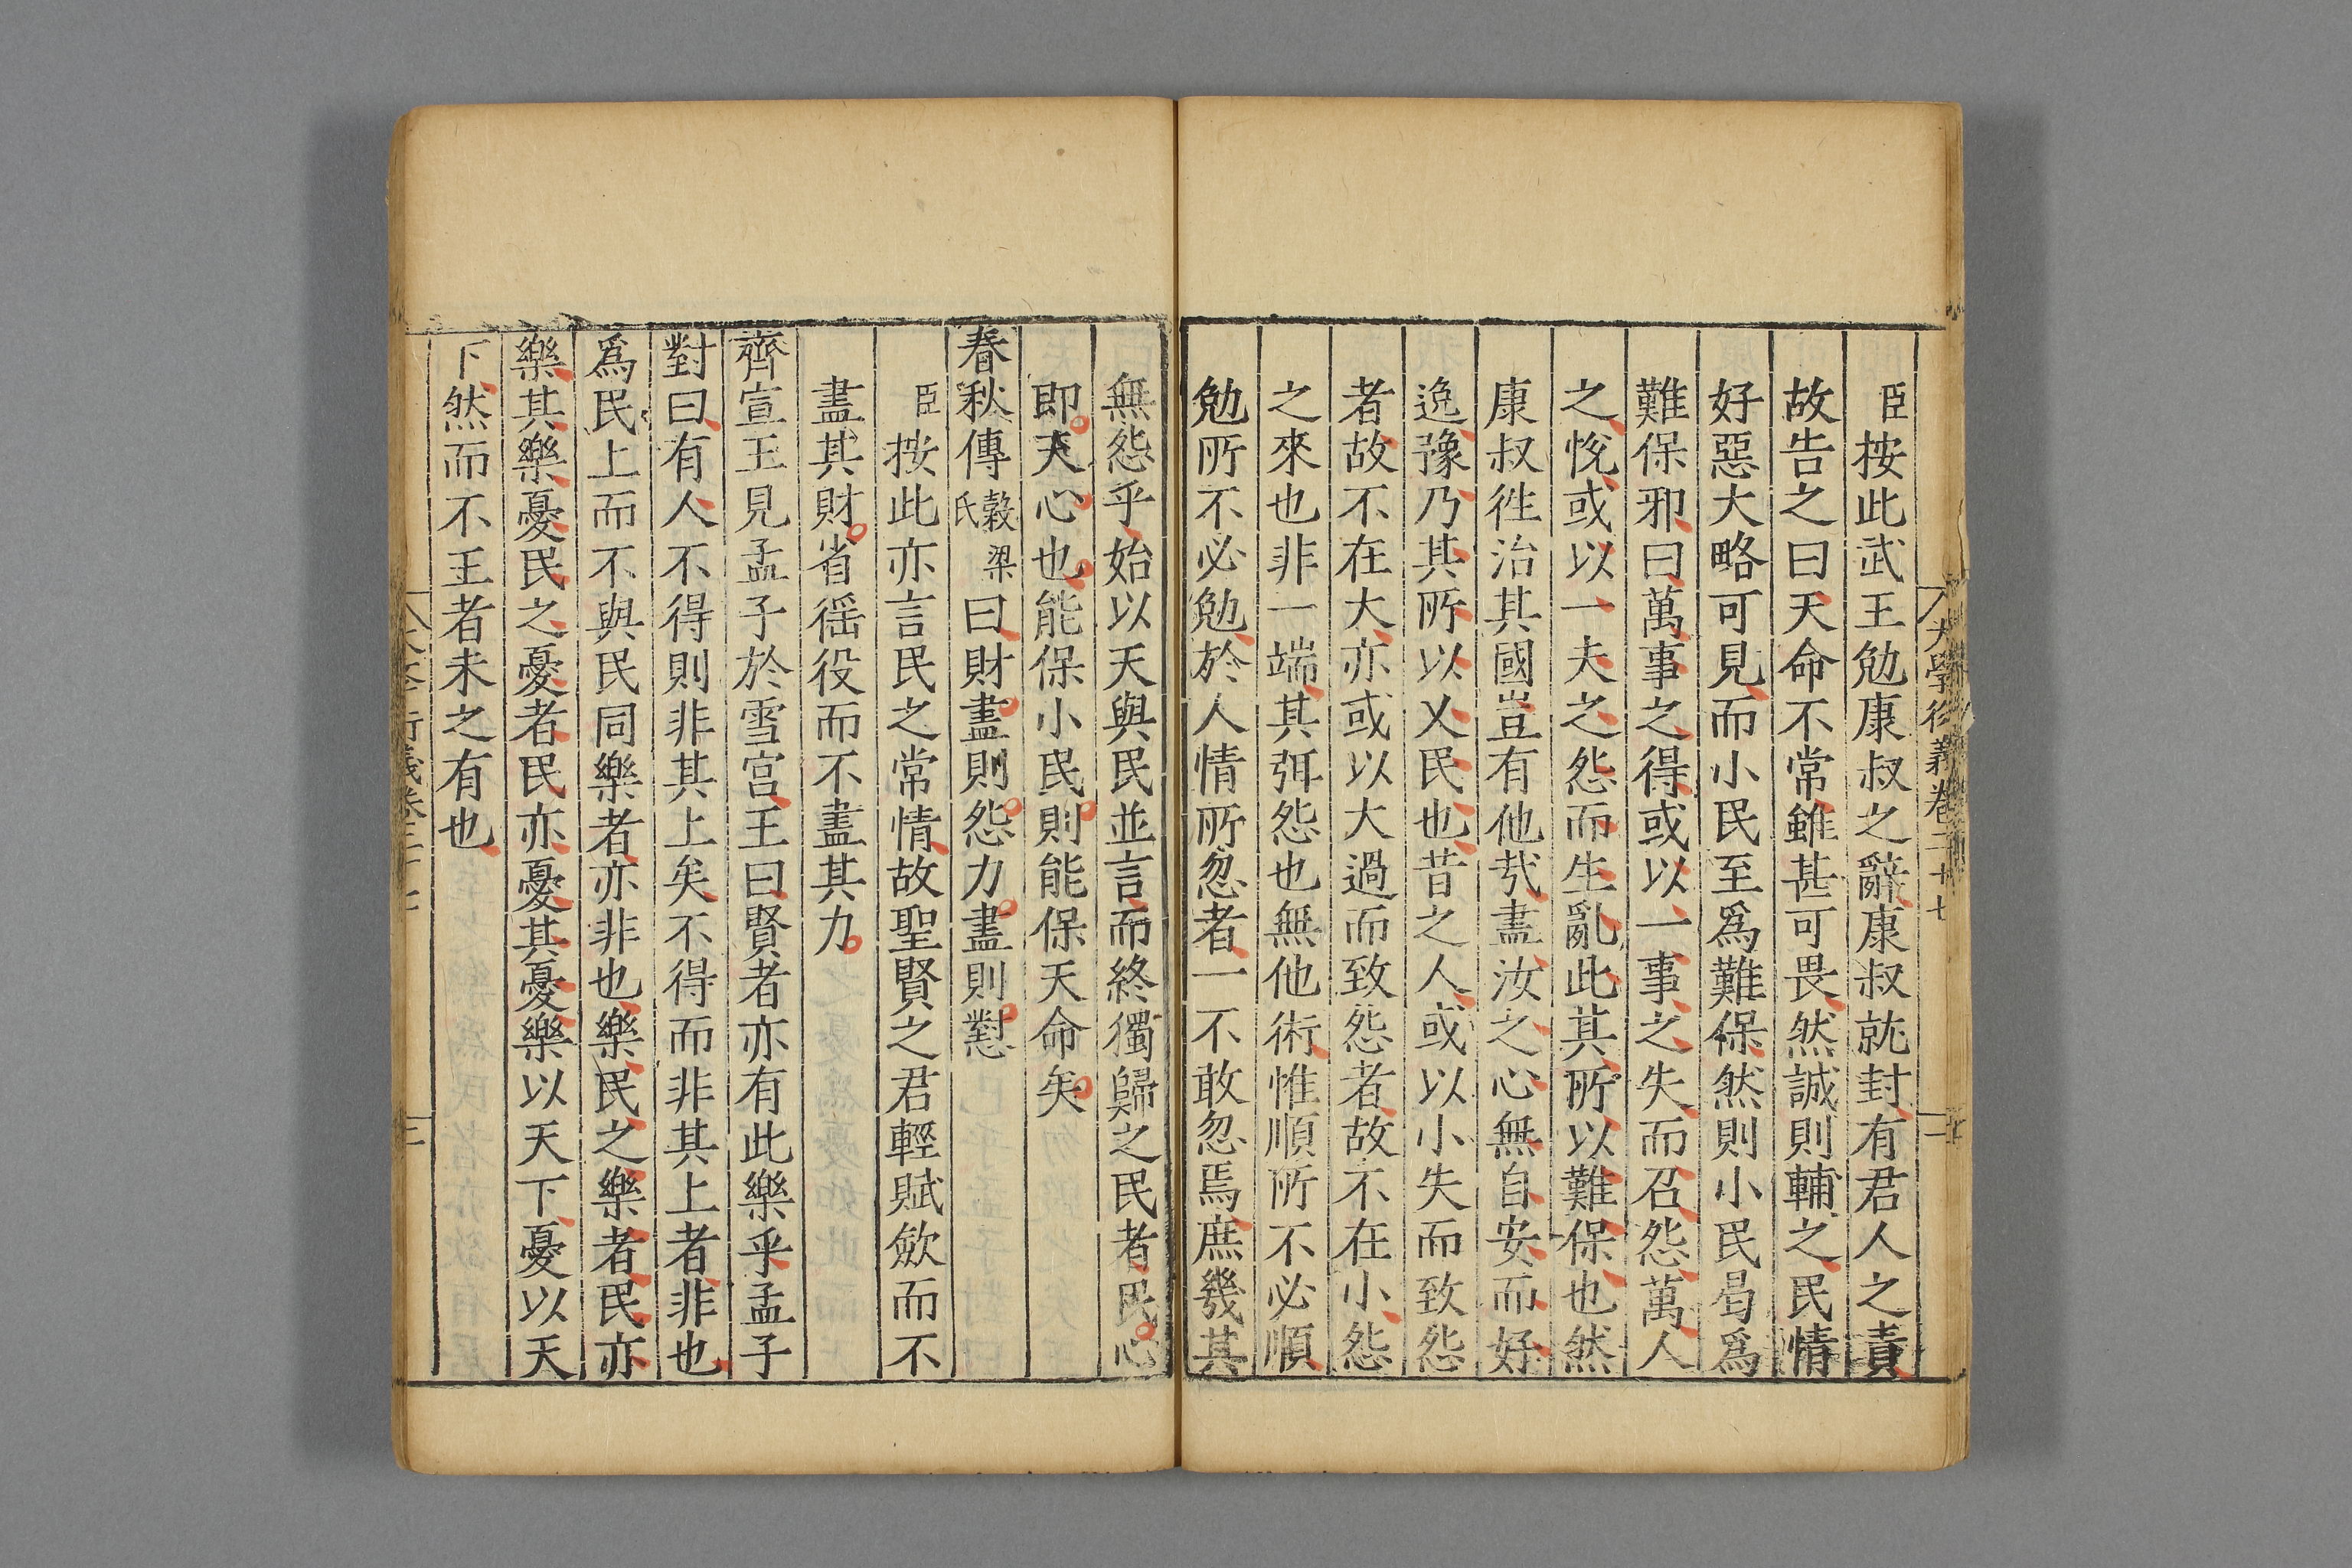 大學衍義卷二十七
臣按此武王勉康叔之辭康叔就封有君人之責
故告之曰天命不常雖甚可畏然誠則輔之民情
好惡大略可見而小民至爲難保然則小民曷爲
難保邪曰萬事之得或以一事之失而召怨萬人
之悅或以一夫之怨而生亂此其所以難保也然
康叔徃治其國豈有他㢤盡汝之心無自安而好
逸豫乃其所以乂民也昔之人或以小失而致怨
者故不在大亦或以大過而致怨者故不在小怨
之來也非一端其弭怨也無他術惟順所不必順
勉所不必勉於人情所忽者一不敢忽焉庶幾其
無怨乎始以天與民並言而終獨歸之民者民心
即天心也能保小民則能保天命矣
春秋傳穀梁氏曰財盡則怨力盡則懟
臣按此亦言民之常情故聖賢之君輕賦歛而不
盡其財省徭役而不盡其力
齊宣王見孟子於雪宫王曰賢者亦有此樂乎孟子
對曰有人不得則非其上矣不得而非其上者非也
爲民上而不與民同樂者亦非也樂民之樂者民亦
樂其樂憂民之憂者民亦憂其憂樂以天下憂以天
下然而不王者未之有也